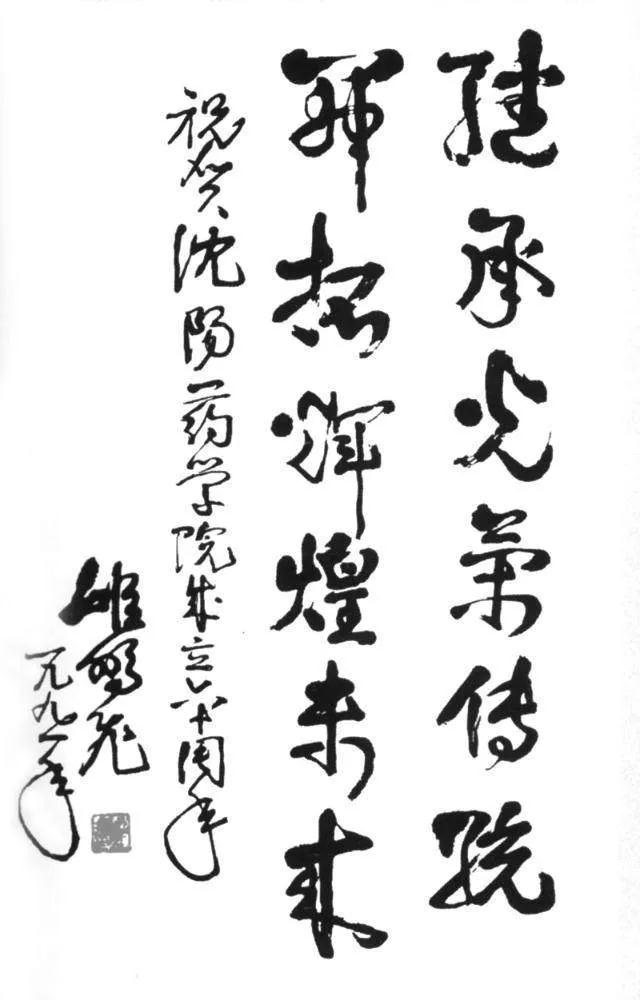 继承光荣传统
开拓辉煌未来
祝贺沈阳药学院成立六十周年
一九九一年